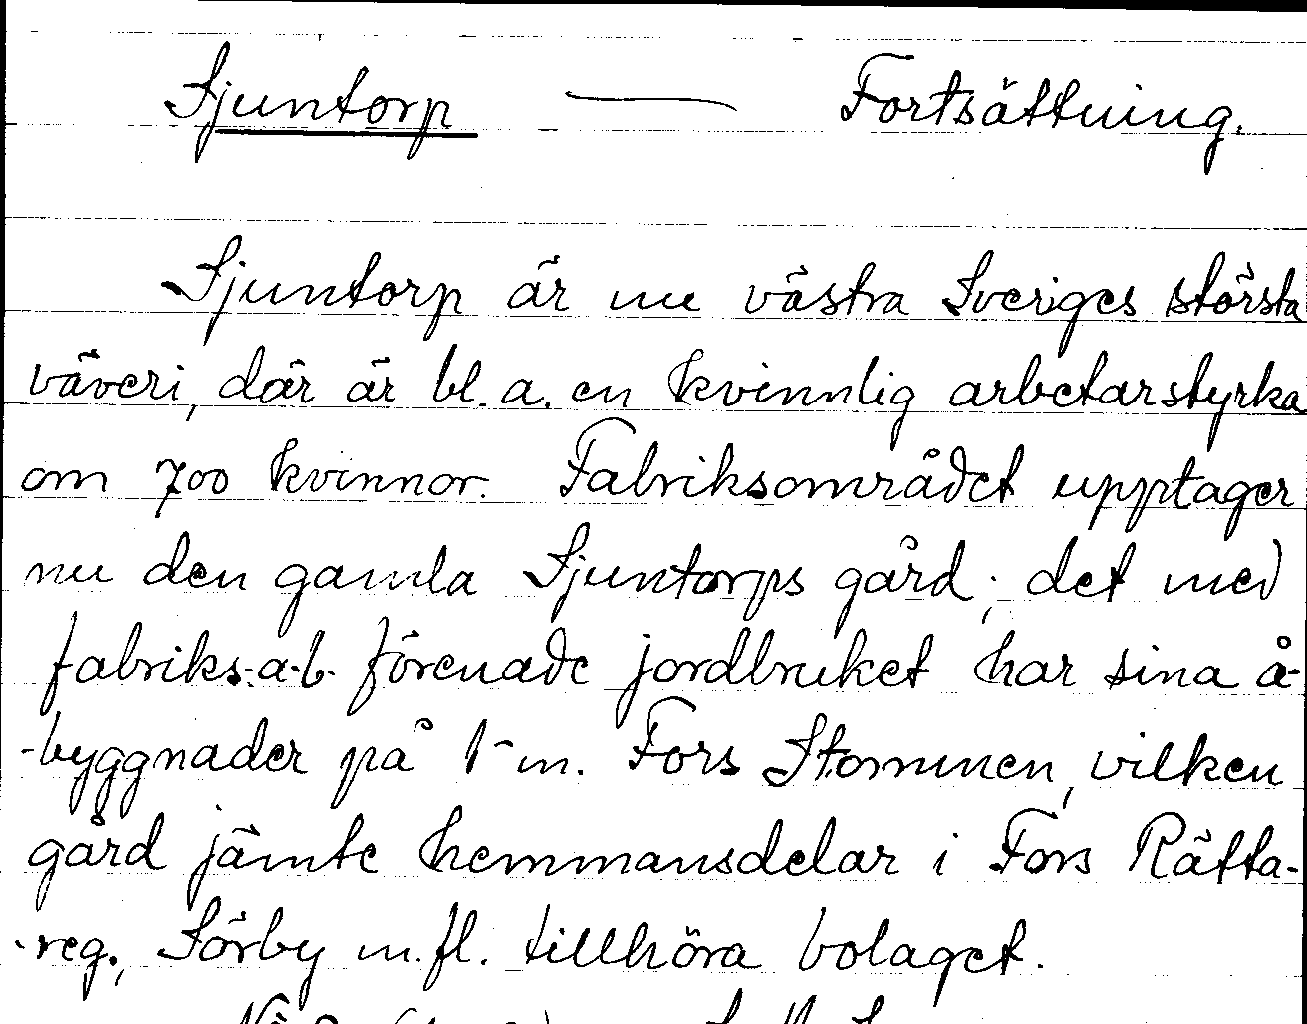 Sjuntorp — Fortsättning.
Sjuntorp är nu västra Sveriges största
väveri, där är bl. a. en kvinnlig arbetarstyrka
om 700 kvinnor. Fabriksområdet upptager
nu den gamla Sjuntorps gård; det med
fabriks-a-b. förenade jordbruket har sina å-
-byggnader på 1-m. Fors Stommen, vilken
gård jämte hemmansdelar i Fors Rätta-
-reg., Sörby m.fl. tillhöra bolaget.